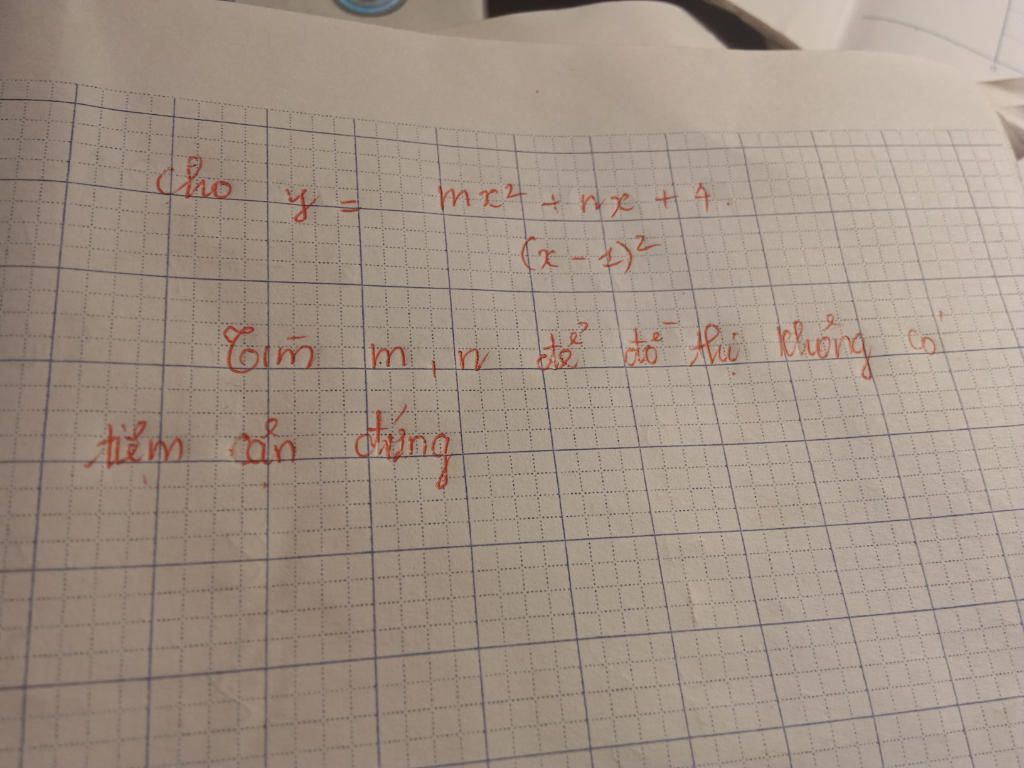 Cho y = mx² + nx + 4.
(x - 1)²
Tìm m, n để đồ thị không có
tiệm cận đứng